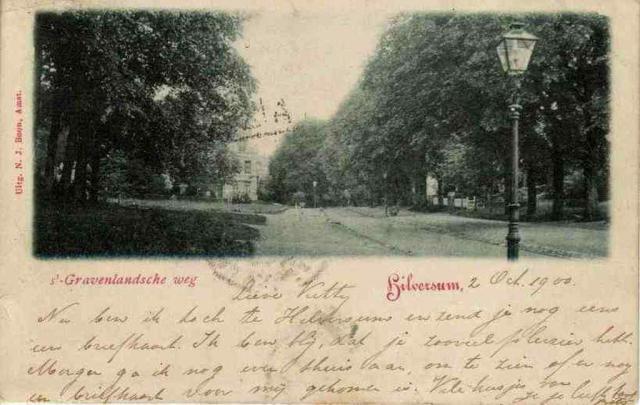 Uitg. N. J. Boon, Amst.
s'-Gravenlandsche weg
Hilversum, 2 Oct. 1900.
Lieve Kitty
Nu ben ik toch te Hilversum en zend je nog eens
een briefkaart. Ik ben blij, dat je zooveel plezier hebt.
Morgen ga ik nog even thuis aan, om te zien of er nog
een briefkaart voor mij gekomen is. Vele kusjes van
je je liefh.